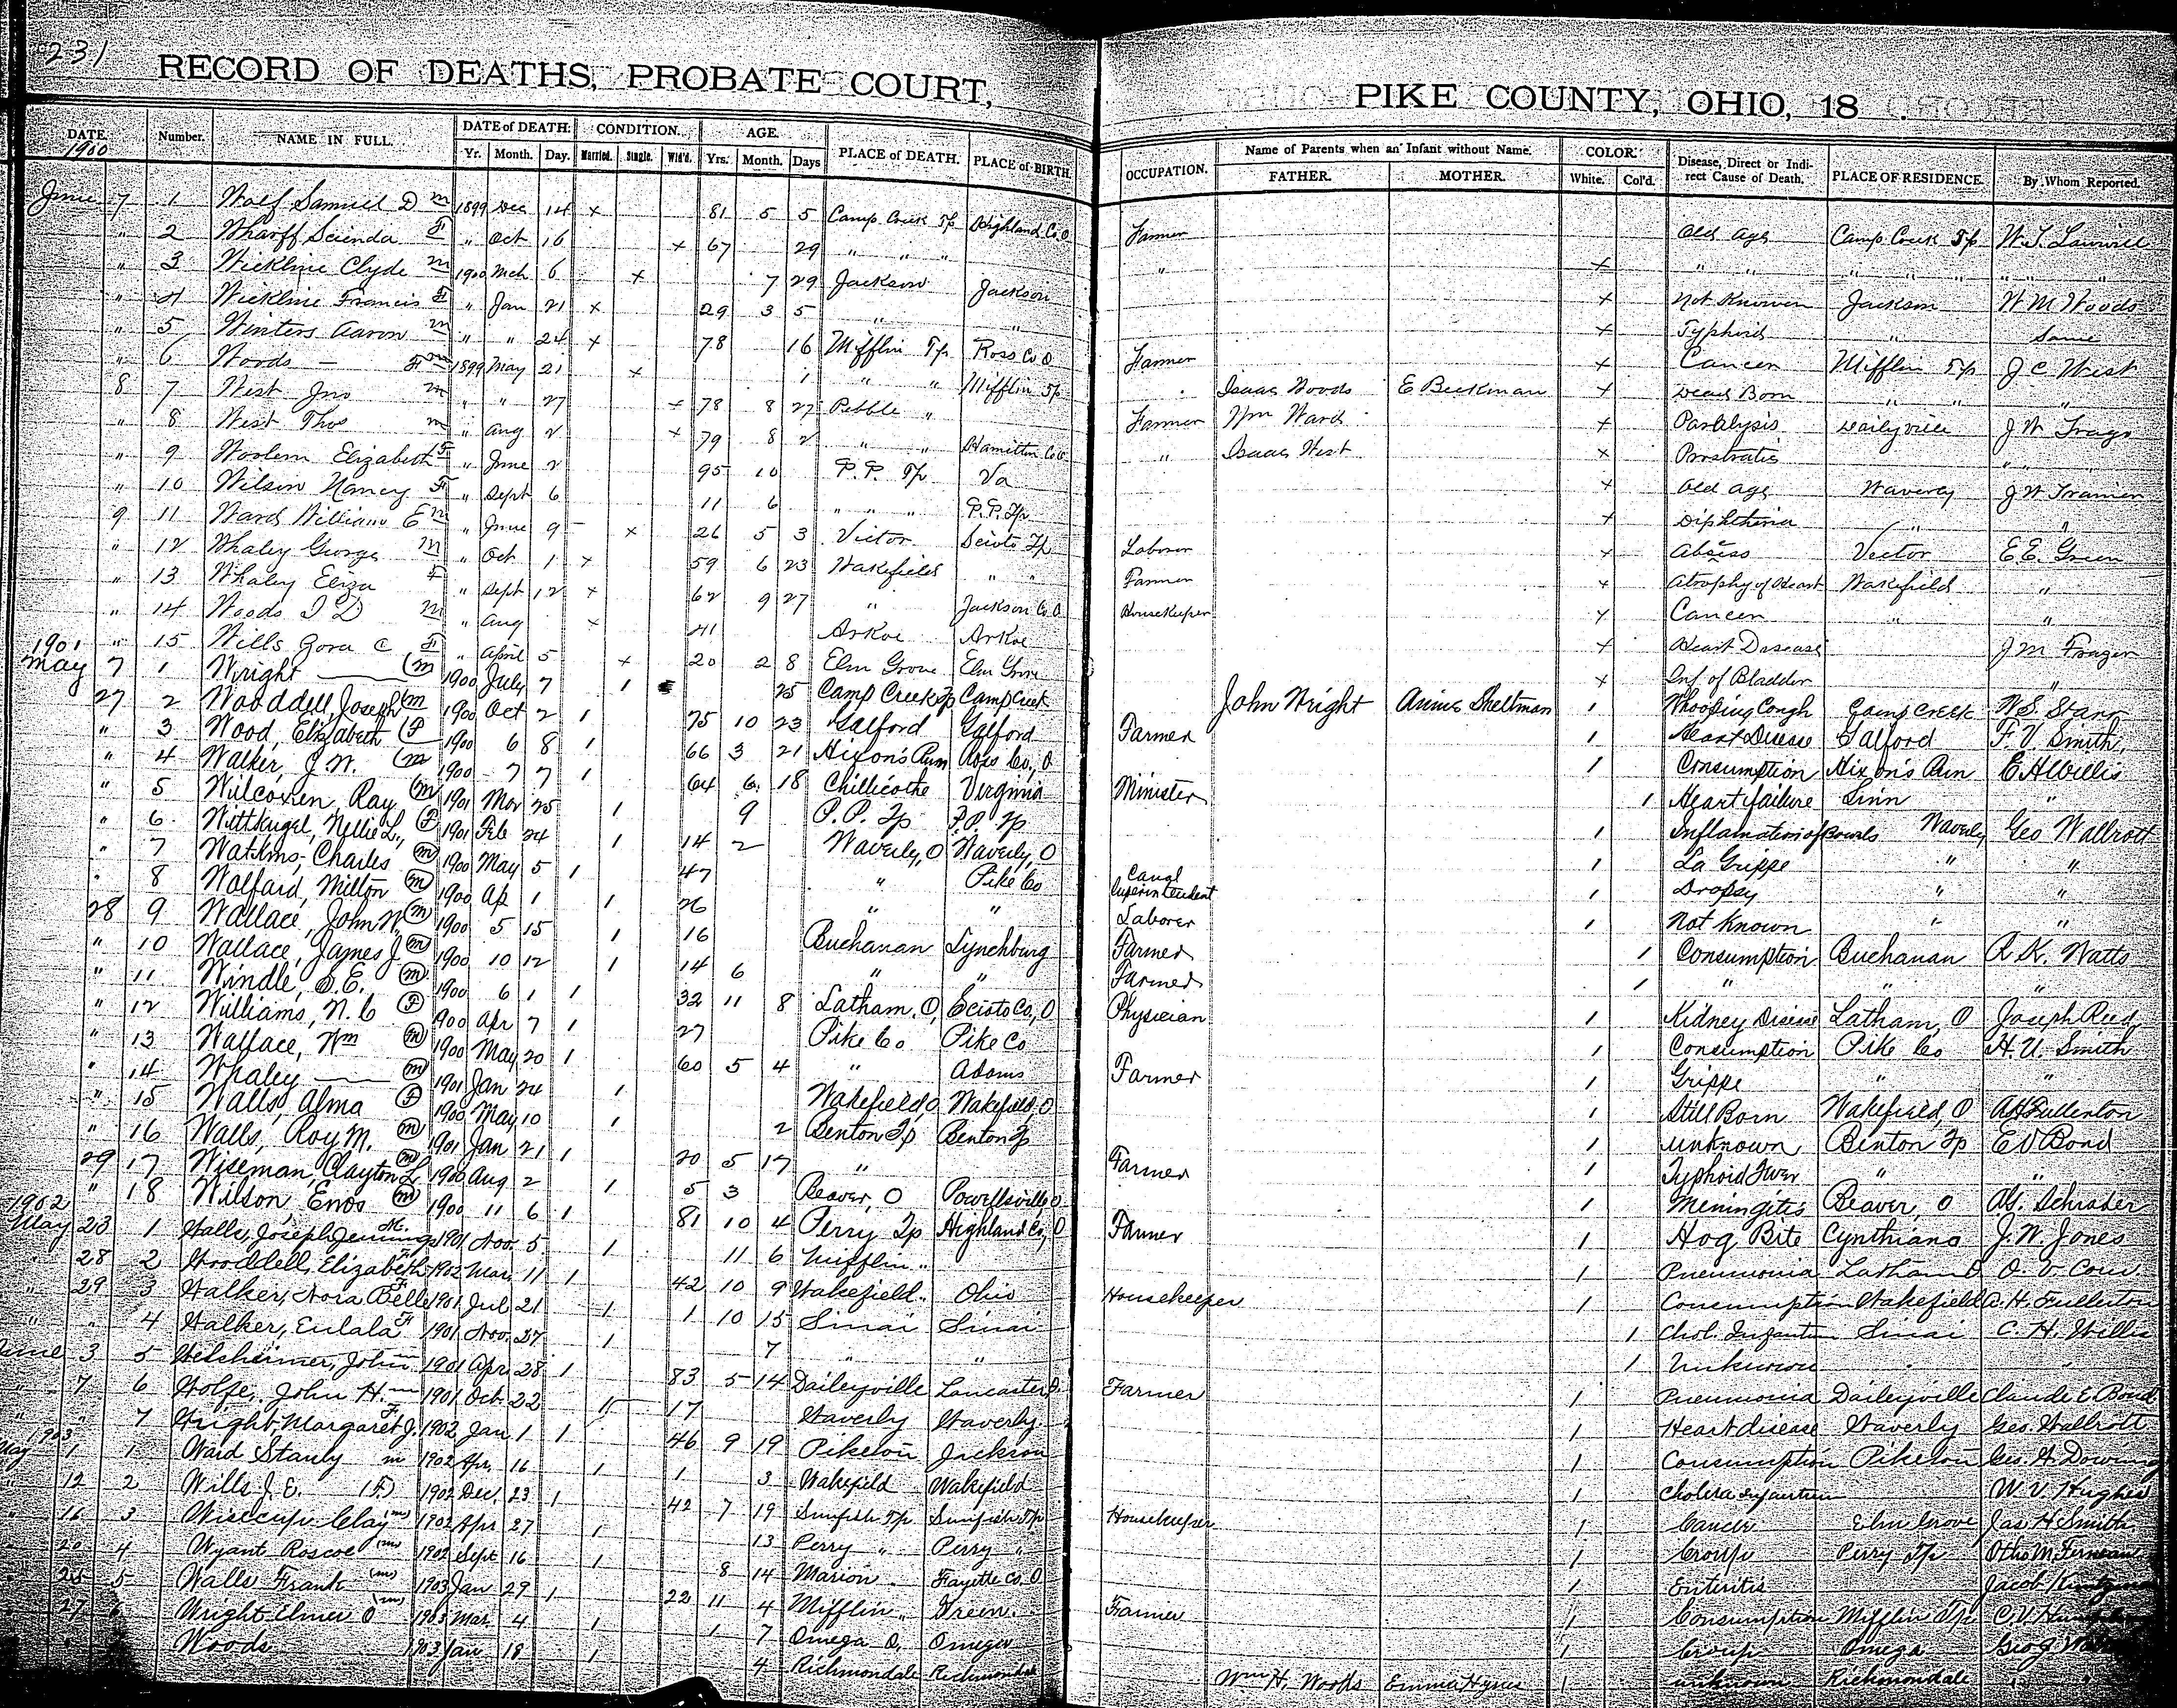 231
RECORD OF DEATHS, PROBATE COURT, PIKE COUNTY, OHIO, 18
DATE. Number. NAME IN FULL. DATE of DEATH. CONDITION. AGE. PLACE of DEATH. PLACE of BIRTH. OCCUPATION. Name of Parents when an Infant without Name. COLOR. Disease, Direct or Indirect Cause of Death. PLACE OF RESIDENCE. By Whom Reported.
1900 Yr. Month. Day. Married. Single. Wid'd. Yrs. Month. Days FATHER. MOTHER. White. Col'd.
June 7 1 Wolf Samuel D m 1899 Dec 14 x 81 5 5 Camp Creek Tp Highland Co. O Farmer Old age Camp Creek Tp
" 2 Wharff F " Oct 16 x 67 29 " " " " x " " " " " " "
" 3 Wickline Clyde m 1900 Mch 6 x 7 29 Jackson Jackson x Not Known Jackson W M Woods
" 4 Wickline Francis F " Jan 21 x 29 3 5 " " x Typhoid " Same
" 5 Winters Aaron m " " 24 x 78 16 Mifflin Tp Ross Co O Farmer x Cancer Mifflin Tp J C West
" 6 Woods — 1899 May 21 x 1 " " Mifflin Tp Isaac Woods E Beekman x Dead Born " " "
8 7 West Jno m " " 27 x 78 8 27 Pebble " Farmer Wm Ward x Paralysis Dailyville
" 8 West Thos m " Aug 2 x 79 8 2 " " Hamilton Co O " Isaac West x " "
" 9 Elizabeth F " June 2 95 10 P.P. Tp Va x Old age Waverly
" 10 Wilson Nancy F " Sept 6 11 6 " " " P.P. Tp x Diphtheria " "
9 11 Ward William E m " June 9 x 26 5 3 Victor Scioto Tp Laborer x Victor E E. Green
" 12 Whaley George m " Oct 1 x 59 6 23 Wakefield " " Farmer x Atrophy of Heart Wakefield "
" 13 Whaley Eliza F " Sept 12 x 62 9 27 " Jackson Co O Housekeeper x Cancer " "
" 14 Woods I D m " Aug x 41 Arkoe Arkoe x Heart Disease J M Frazier
" 15 Wills Zora C F " April 5 x 20 2 8 Elm Grove Elm Grove x Inf of Bladder "
1901
May 7 1 Wright —— (m 1900 July 7 1 25 Camp Creek Tp Camp Creek John Wright Annie Sheltman 1 Whooping Cough Camp Creek W S Starr
27 2 Wooddell, Joseph (m 1900 Oct 2 1 75 10 23 Galford Galford Farmer 1 Heart Disease Galford F. V. Smith,
" 3 Wood, Elizabeth (F 1900 6 8 1 66 3 21 Hixon's Run Ross Co., O 1 Consumption Hixon's Run C H Willis
" 4 Walker, J. W. (m 1900 7 7 1 64 6 18 Chillicothe Virginia Minister 1 Heart failure "
" 5 Wilcoxen, Ray (m 1901 Mar 25 1 9 P. P. Tp P. P. Tp 1 Inflamation of Bowels Waverly Geo Wallrott
" 6 Wittkugel, Nellie L., (F 1901 Feb 24 1 14 2 Waverly, O Waverly, O 1 La Grippe " "
" 7 Watkins, Charles (m) 1900 May 5 1 47 " Pike Co Canal Superintendent 1 Dropsy " "
" 8 Wolfard, Milton (m) 1900 Ap 1 1 26 " " Laborer 1 Not Known " "
28 9 Wallace, John W. (m) 1900 5 15 1 16 Buchanan Lynchburg Farmer 1 Consumption Buchanan R. K. Watts
" 10 Wallace, James J. (m) 1900 10 12 1 14 6 " " Farmer 1 " " "
" 11 Windle, S. E. (m) 1900 6 1 1 32 11 8 Latham, O, Scioto Co, O Physician 1 Kidney Disease Latham, O Joseph Reed
" 12 Williams, N. C (F) 1900 Apr 7 1 27 Pike Co Pike Co 1 Consumption Pike Co H. U. Smith
" 13 Wallace, Wm (m) 1900 May 20 1 60 5 4 " Adams Farmer 1 Grippe " "
" 14 Whaley —— (m) 1901 Jan 24 1 Wakefield, O Wakefield, O 1 Still Born Wakefield, O A H Fullerton
" 15 Walls, Alma (F) 1900 May 10 1 2 Benton Tp Benton Tp 1 unknown Benton Tp E D Bond
" 16 Walls, Roy M. (m) 1901 Jan 21 1 20 5 17 " Farmer 1 Typhoid Fever " "
29 17 Wiseman, Clayton L (m) 1900 Aug 2 1 5 3 Beaver, O Powellsville, O 1 Meningitis Beaver, O Schrader
" 18 Wilson, Enos (m) 1900 11 6 1 81 10 4 Perry Tp Highland Co, O Farmer 1 Hog Bite Cynthiana J. W. Jones
1902
May 23 1 Walls, Joseph Jennings M. 1901 Nov. 5 1 11 6 Mifflin " 1 Pneumonia Latham O
" 28 2 Wooddell, Elizabeth F 1902 Mar. 11 1 42 10 9 Wakefield " Ohio Housekeeper 1 Consumption Wakefield A. H. Fullerton
" 29 3 Walker, Nora Belle F 1901 Jul 21 1 1 10 15 Sinai Sinai 1 Chol. Infantum Sinai C. H. Willis
" " 4 Walker, Eulala F 1901 Nov. 27 1 7 " " 1 Unknown " "
June 3 5 Welsheimer, John m 1901 Apr. 28 1 83 5 14 Daileyville Lancaster O. Farmer 1 Pneumonia Daileyville Claude E. Bond
" 7 6 Wolfe, John H. m 1901 Oct. 22 1 17 Waverly Waverly 1 Heart disease Waverly Geo. Wallrott
" " 7 Wright, Margaret J. F. 1902 Jan 1 1 46 9 19 Piketon Jackson 1 Consumption Piketon
1903
May 1 1 Ward Stanly m 1902 Apr. 16 1 1 3 Wakefield Wakefield 1 Cholera Infantum W. V. Hughes
" 12 2 Wills J. E. (F) 1902 Dec. 23 1 42 7 19 Sunfish Tp Sunfish Tp Housekeeper 1 Cancer Elm Grove Jas H Smith
" 16 3 Wisecup Clay (m) 1902 Apr 27 1 13 Perry " Perry " 1 Croup Perry Tp
" 20 4 Wyant Roscoe (m) 1902 Sept 16 1 8 14 Marion Fayette Co, O 1 Enteritis Jacob
" 25 5 Walls Frank (m) 1903 Jan 29 1 22 11 4 Mifflin " Green Farmer 1 Consumption Mifflin Tp
" 27 6 Wright Elmer O (m) 1903 Mar. 4 1 1 7 Omega O. Omega 1 Croup Omega
Woods 1903 Jan 18 1 4 Richmondale Richmondale Wm H. Woods Emma Hynes 1 unknown Richmondale